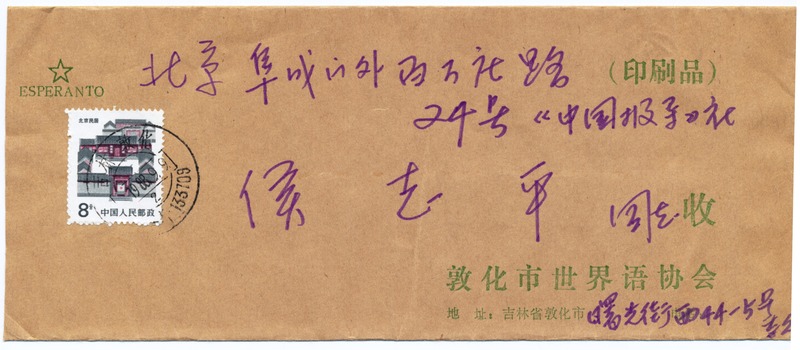 ESPERANTO
北京阜成门外百万庄路
(印刷品)
24号《中国报导》社
北京民居
8分 中国人民邮政
133709
侯志平 同志收
敦化市世界语协会
地 址:吉林省敦化市曙光街西44-5号